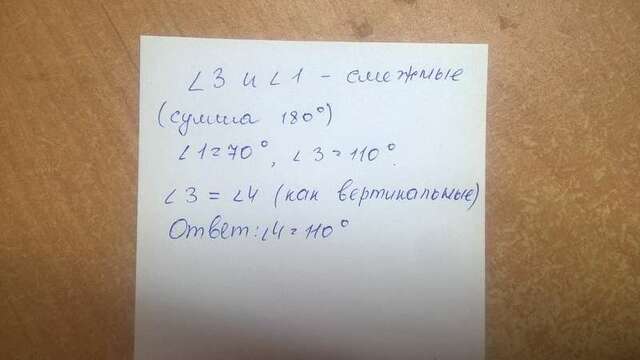 ∠3 и ∠1 - смежные
(сумма 180°)
∠1=70°, ∠3=110°.
∠3=∠4 (как вертикальные)
Ответ: ∠4=110°